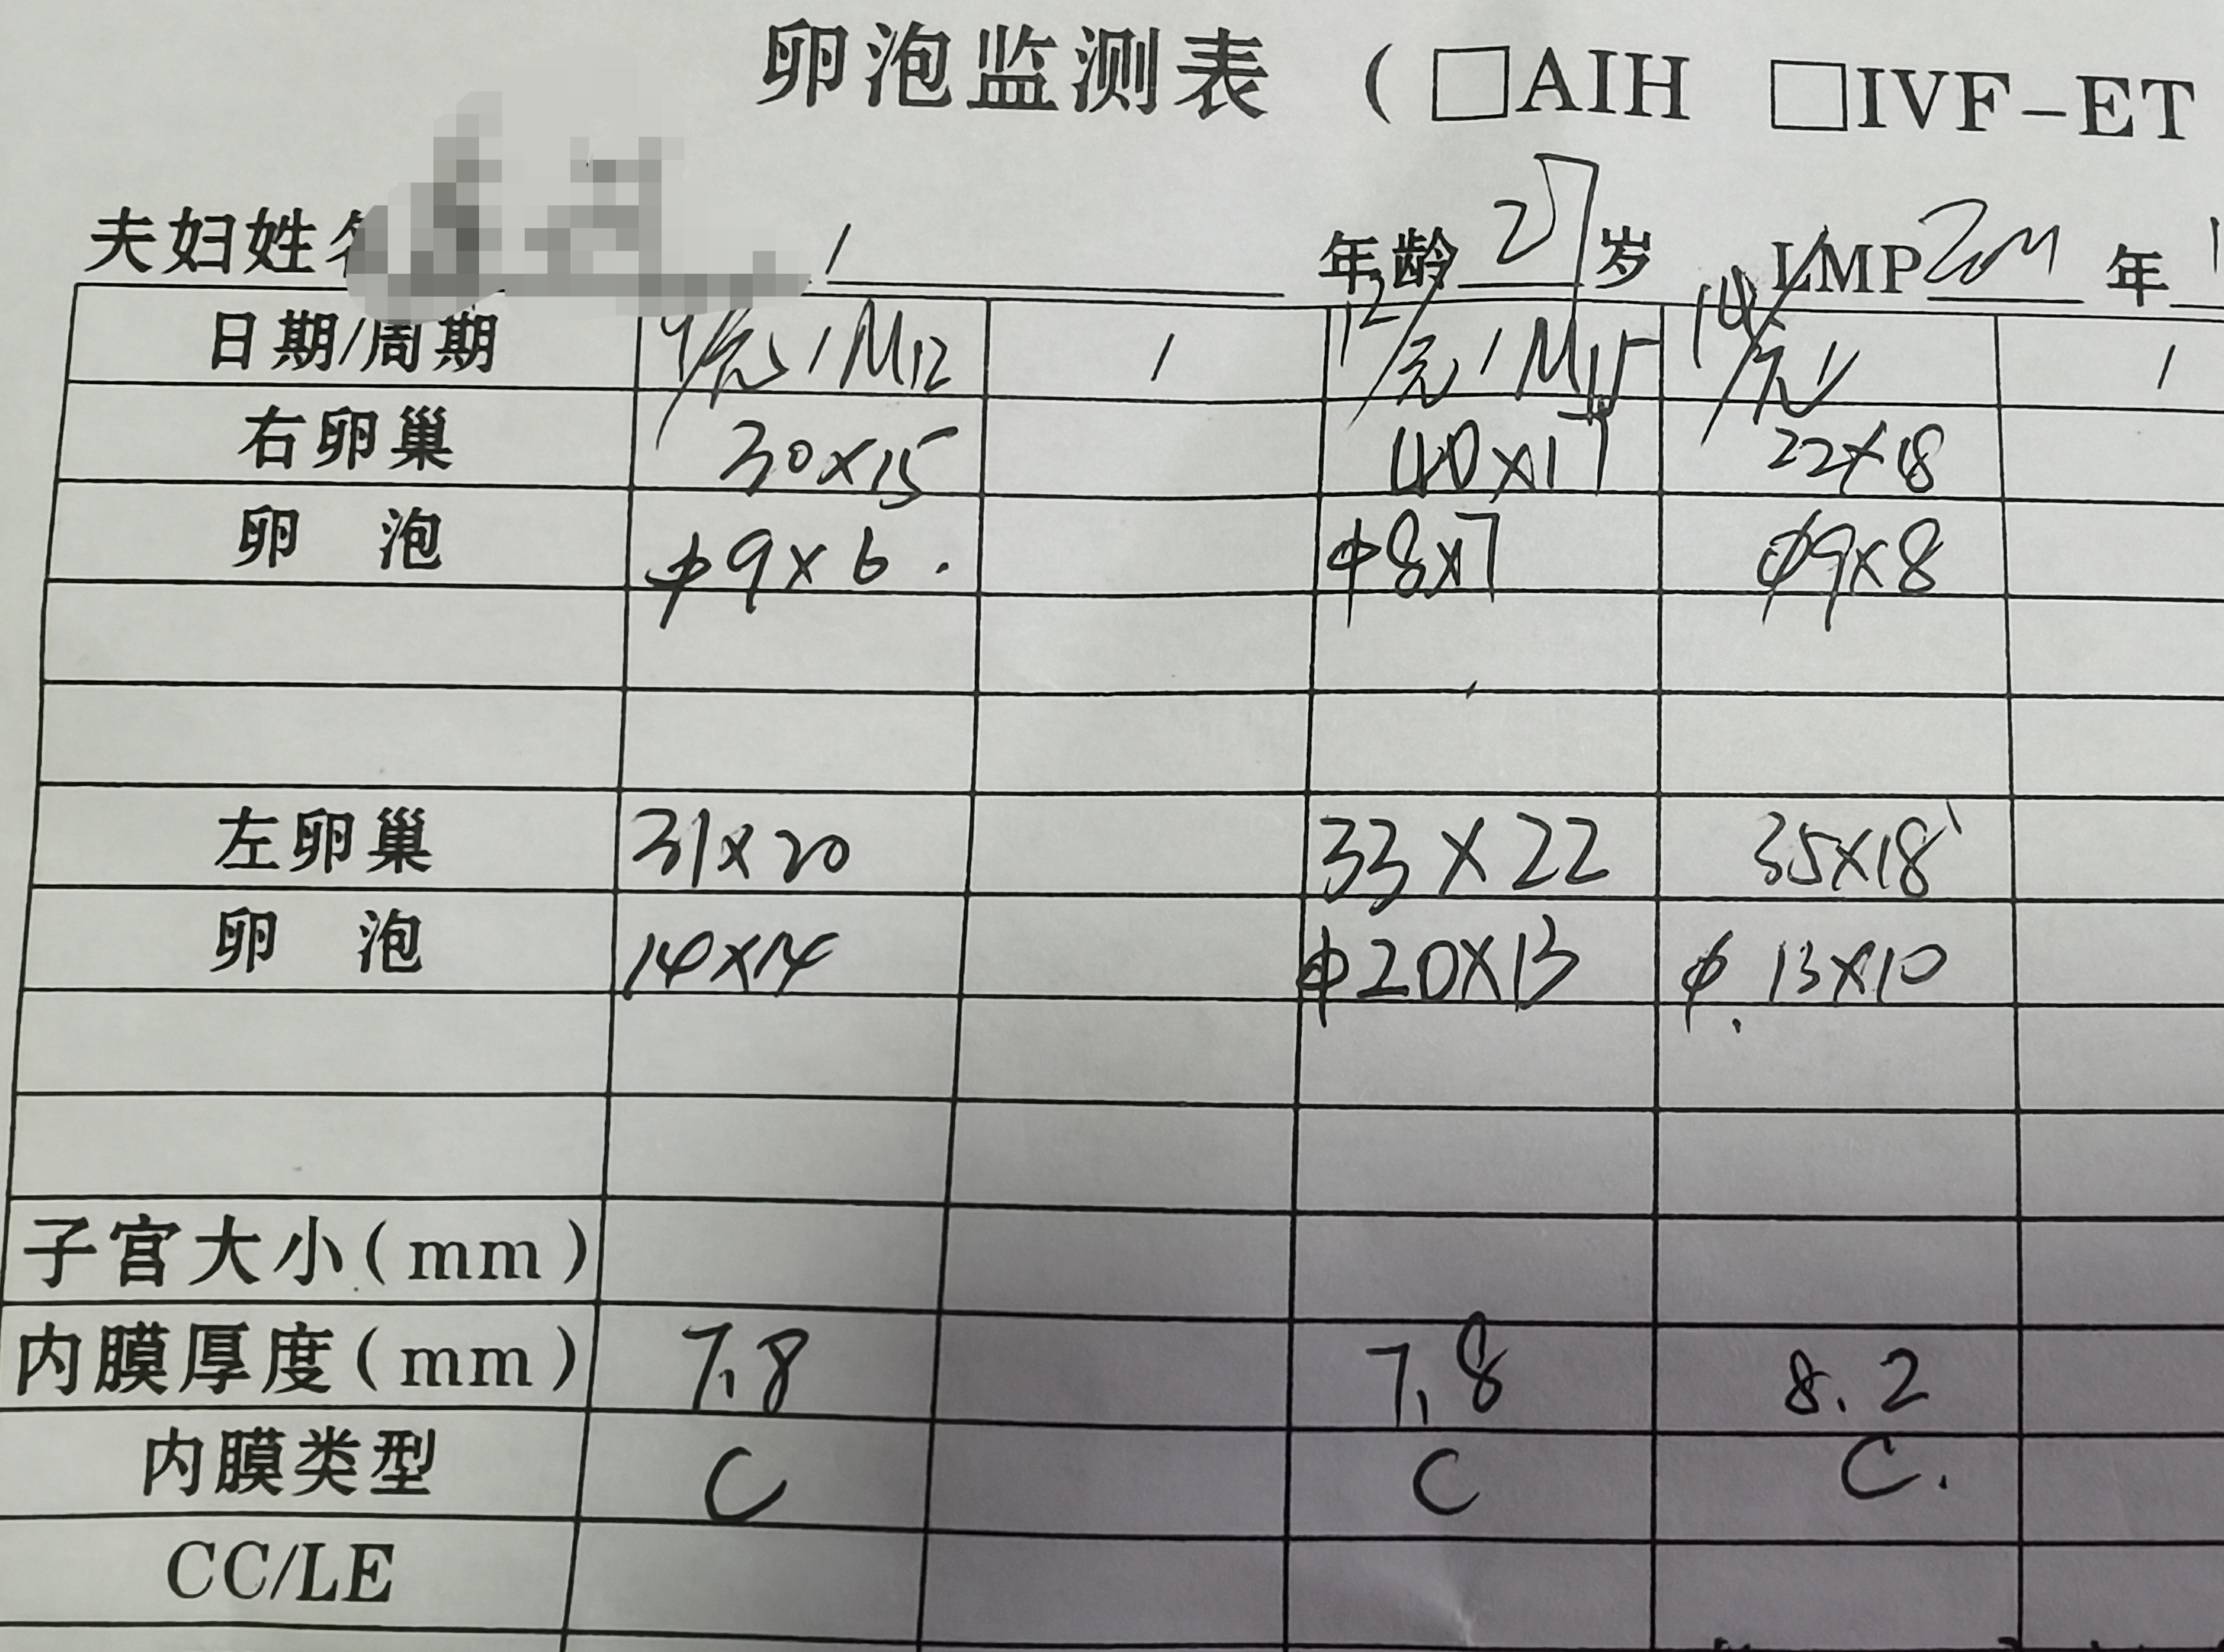 卵泡监测表 ( □AIH □IVF-ET
夫妇姓 / 年龄 27 岁 LMP 年
日期/周期 9/元 / M12 / 12/元 / M15 14/元 / /
右卵巢 30×15 40×17 22×18
卵 泡 φ9×6. φ8×7 φ9×8
左卵巢 31×20 33×22 35×18
卵 泡 14×14 φ20×13 φ.13×10
子宫大小(mm)
内膜厚度(mm) 7.8 7.8 8.2
内膜类型 C C C.
CC/LE